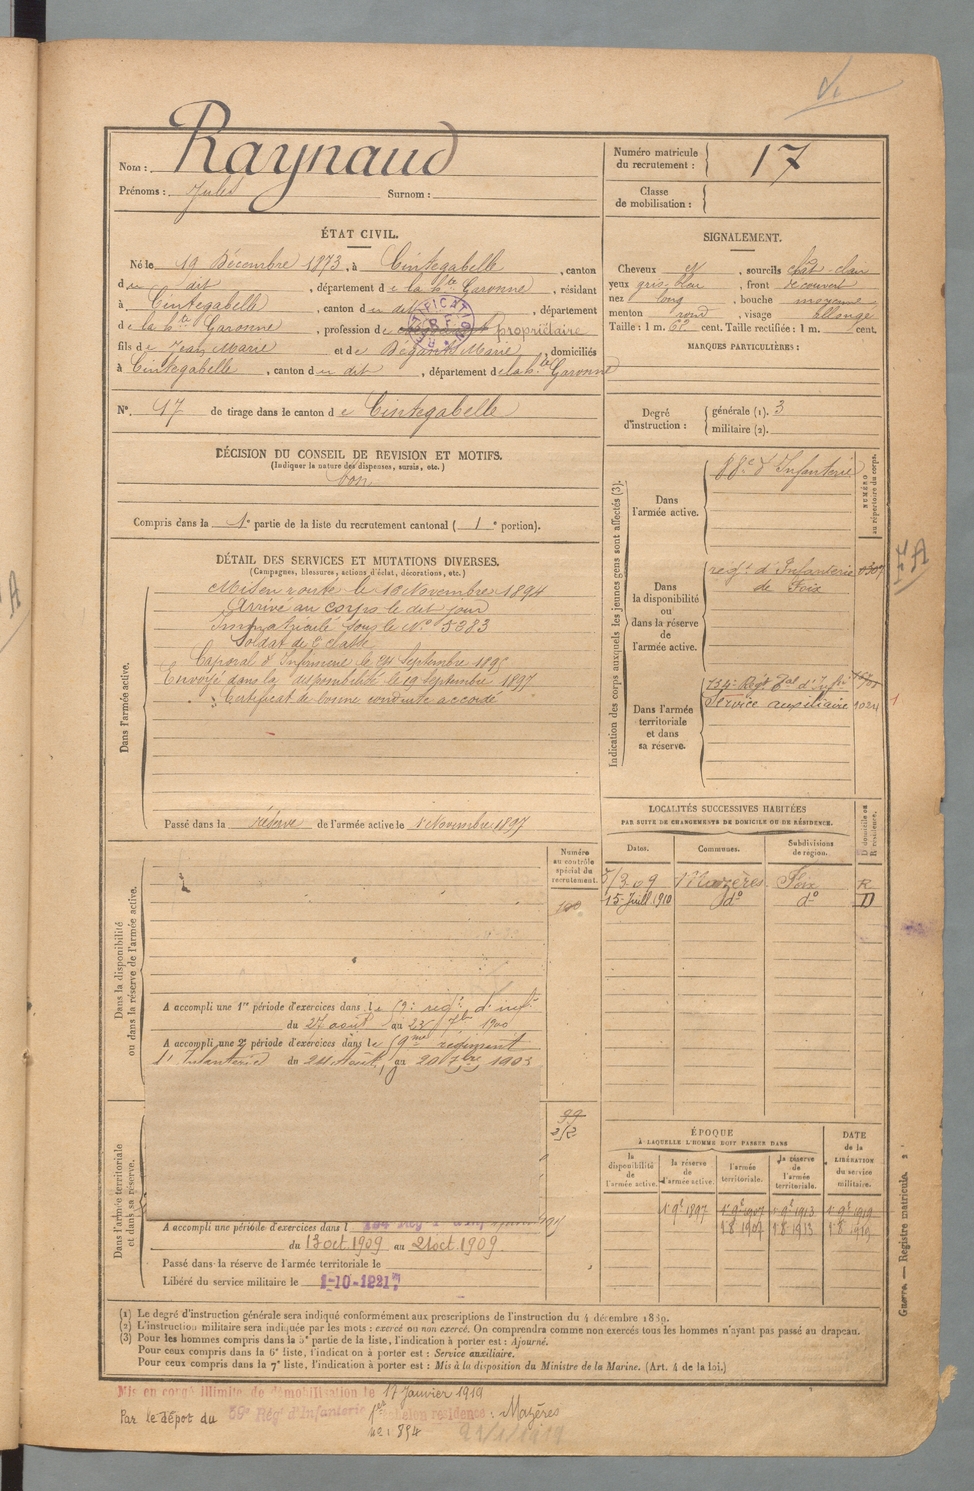 Nom : Raynaud
Prénoms : Jules Surnom :
Numéro matricule du recrutement : 17
Classe de mobilisation :
ÉTAT CIVIL.
Né le 19 Décembre 1873, à Cintegabelle, canton
du dit, département de la hte Garonne, résidant
à Cintegabelle, canton du dit, département
de la hte Garonne, profession de propriétaire
fils de Jean Marie et de Marie, domiciliés
à Cintegabelle, canton du dit, département de la hte Garonne
N° 17 de tirage dans le canton de Cintegabelle
SIGNALEMENT.
Cheveux N, sourcils chat-clair
yeux gris-bleu, front découvert
nez long, bouche moyenne
menton rond, visage allongé
Taille : 1 m. cent. Taille rectifiée : 1 m. cent.
MARQUES PARTICULIÈRES :
Degré d'instruction : générale (1). 3
militaire (2).
DÉCISION DU CONSEIL DE REVISION ET MOTIFS.
(Indiquer la nature des dispenses, sursis, etc.)
bon
Compris dans la 1e partie de la liste du recrutement cantonal (1e portion).
DÉTAIL DES SERVICES ET MUTATIONS DIVERSES.
(Campagnes, blessures, actions d'éclat, décorations, etc.)
Dans l'armée active.
Mis en route le 10 Novembre 1894
Arrivé au corps le dit jour
Immatriculé sous le N° 5283
Soldat de 2e classe
Caporal d'Infirmerie le 24 Septembre 1895
Envoyé dans la disponibilité le 19 Septembre 1897
Certificat de bonne conduite accordé
Passé dans la réserve de l'armée active le 1 Novembre 1897
Indication des corps auxquels les jeunes gens sont affectés (3).
NUMÉRO au répertoire du corps.
Dans l'armée active. 88e d'Infanterie
Dans la disponibilité ou dans la réserve de l'armée active. regt d'Infanterie de Foix
Dans l'armée territoriale et dans sa réserve. 134e Regt Tal d'Infie
Service auxiliaire 1024
LOCALITÉS SUCCESSIVES HABITÉES
PAR SUITE DE CHANGEMENTS DE DOMICILE OU DE RÉSIDENCE.
Dates. Communes. Subdivisions de région. D domicile ou R résidence.
5/3.09 Mazères Foix R
15 Juill 1910 do do D
Dans la disponibilité ou dans la réserve de l'armée active.
Numéro au contrôle spécial du recrutement.
A accompli une 1re période d'exercices dans le 59e regt d'infie
du 27 août au 23 7bre 1900
A accompli une 2e période d'exercices dans le 59me régiment
d'Infanterie du 24 Août au 20 7bre 1903
Dans l'armée territoriale et dans sa réserve.
99
A accompli une période d'exercices dans l
du 13 oct 1909 au 21 oct 1909
Passé dans la réserve de l'armée territoriale le
Libéré du service militaire le 1-10-1921
ÉPOQUE
À LAQUELLE L'HOMME DOIT PASSER DANS
la disponibilité de l'armée active. la réserve de l'armée active. l'armée territoriale. la réserve de l'armée territoriale. DATE de la LIBÉRATION du service militaire.
1 9e 1897 1 9e 1907 1 9e 1913 1 9e 1919
1 8 1907 1 8 1913 1 8 1919
(1) Le degré d'instruction générale sera indiqué conformément aux prescriptions de l'instruction du 4 décembre 1889.
(2) L'instruction militaire sera indiquée par les mots : exercé ou non exercé. On comprendra comme non exercés tous les hommes n'ayant pas passé au drapeau.
(3) Pour les hommes compris dans la 5e partie de la liste, l'indication à porter est : Ajourné.
Pour ceux compris dans la 6e liste, l'indication à porter est : Service auxiliaire.
Pour ceux compris dans la 7e liste, l'indication à porter est : Mis à la disposition du Ministre de la Marine. (Art. 4 de la loi.)
Guerre — Registre matricule. 2
Mis en congé illimité de démobilisation le 17 Janvier 1919
Par le dépot du 59e Rég' d'Infanterie 1er échelon residence : Mazères